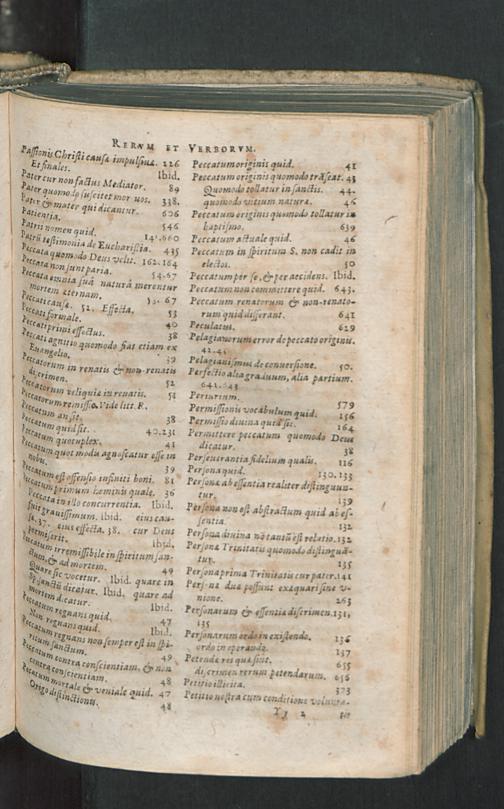 RERVM ET VERBORVM.
Passionis Christi causæ impulsiuæ. 226
Et finales. Ibid.
Pater cur non factus Mediator. 89
Pater quomodo suscitet mor uos. 338.
Pater & mater qui dicantur. 606
Patientia. 546
Patris nomen quid. 141.660
Patrũ testimonia de Eucharistia. 435
Peccata quomodo Deus velit. 162.164
Peccata non sunt paria. 54.67
Peccata omnia suâ naturâ merentur
mortem æternam. 53. 67
Peccati causæ. 52. Effecta. 53
Peccati formale. 40
Peccati primi effectus. 38
Peccati agnitio quomodo fiat etiam ex
Euangelio. 39
Peccatorum in renatis & non-renatis
discrimen. 52
Peccatorum reliquiæ in renatis. 51
Peccatorum remissio. Vide litt. R.
Peccatum an sit. 38
Peccatum quid sit. 40.231
Peccatum quotuplex. 41
Peccatum quot modis agnoscatur esse in
nobis. 39
Peccatum est offensio infiniti boni. 81
Peccatum primum hominis quale. 36
Peccata in illo concurrentia. Ibid.
fuit grauissimum. Ibid. eius cau-
sæ. 37. eius effecta. 38. cur Deus
permiserit. Ibid.
Peccatum irremissibile in spiritum san-
ctum, & ad mortem. 49
Quare sic vocetur. Ibid. quare in
Sp. sanctũ dicatur. Ibid. quare ad
mortem dicatur. Ibid.
Peccatum regnans quid. 47
Non regnans quid. Ibid.
Peccatum regnans non semper est in spi-
ritum sanctum. 49
Peccatum contra conscientiam. & non
contra conscientiam. 48
Peccatum mortale & veniale quid. 47
Origo distinctionis. 48
Peccatum originis quid. 41
Peccatum originis quomodo trãseat. 43
Quomodo tollatur in sanctis. 44.
quomodo vitium naturæ. 46
Peccatum originis quomodo tollatur in
baptismo. 639
Peccatum actuale quid. 46
Peccatum in spiritum S. non cadit in
electos. 50
Peccatum per se, & per accidens. Ibid.
Peccatum non committere quid. 643.
Peccatum renatorum & non-renato-
rum quid differant. 641
Peculatus. 629
Pelagianorum error de peccato originis.
42.41
Pelagianismus de conuersione. 50.
Perfectio alia graduum, alia partium.
642.643
Periurium. 579
Permissionis vocabulum quid. 156
Permissio diuina quid sit. 164
Permittere peccatum quomodo Deus
dicatur. 38
Perseuerantia fidelium qualis. 116
Persona quid. 130.133
Persona ab essentia realiter distinguun-
tur. 139
Persona non est abstractum quid ab es-
sentia. 132
Persona diuina nõ tantũ est relatio. 132
Personæ Trinitatis quomodo distinguã-
tur. 135
Persona prima Trinitatis cur pater. 141
Personæ duæ possunt exæquari sine v-
nione. 263
Personarum & essentiæ discrimen. 131,
135
Personarum ordo in existendo. 136
ordo in operando. 137
Petendæ res quæ sint. 655
discrimen rerum petendarum. 656
Petitio illicita. 373
Petitio nostra cum conditione volunta-
Xx 2